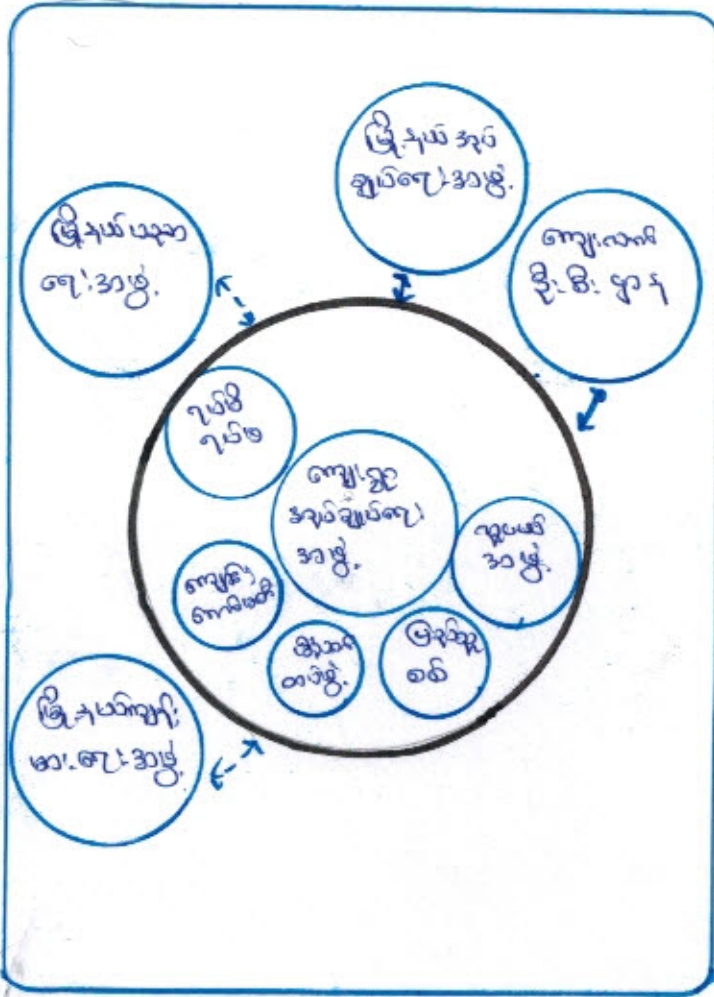 မြို့နယ် အုပ်
ချုပ်ရေး အဖွဲ့
ကျေးလက်
ဦး စီး ဌာန
မြို့နယ် ပညာ
ရေး အဖွဲ့
ရပ်မိ
ရပ်ဖ
ကျေးရွာ
အုပ်ချုပ်ရေး
အဖွဲ့
လူငယ်
အဖွဲ့
ကျောင်း
ကော်မတီ
မီးသတ်
တပ်ဖွဲ့
ပြည်သူ့
စစ်
မြို့နယ်ကျန်း
မာရေး အဖွဲ့